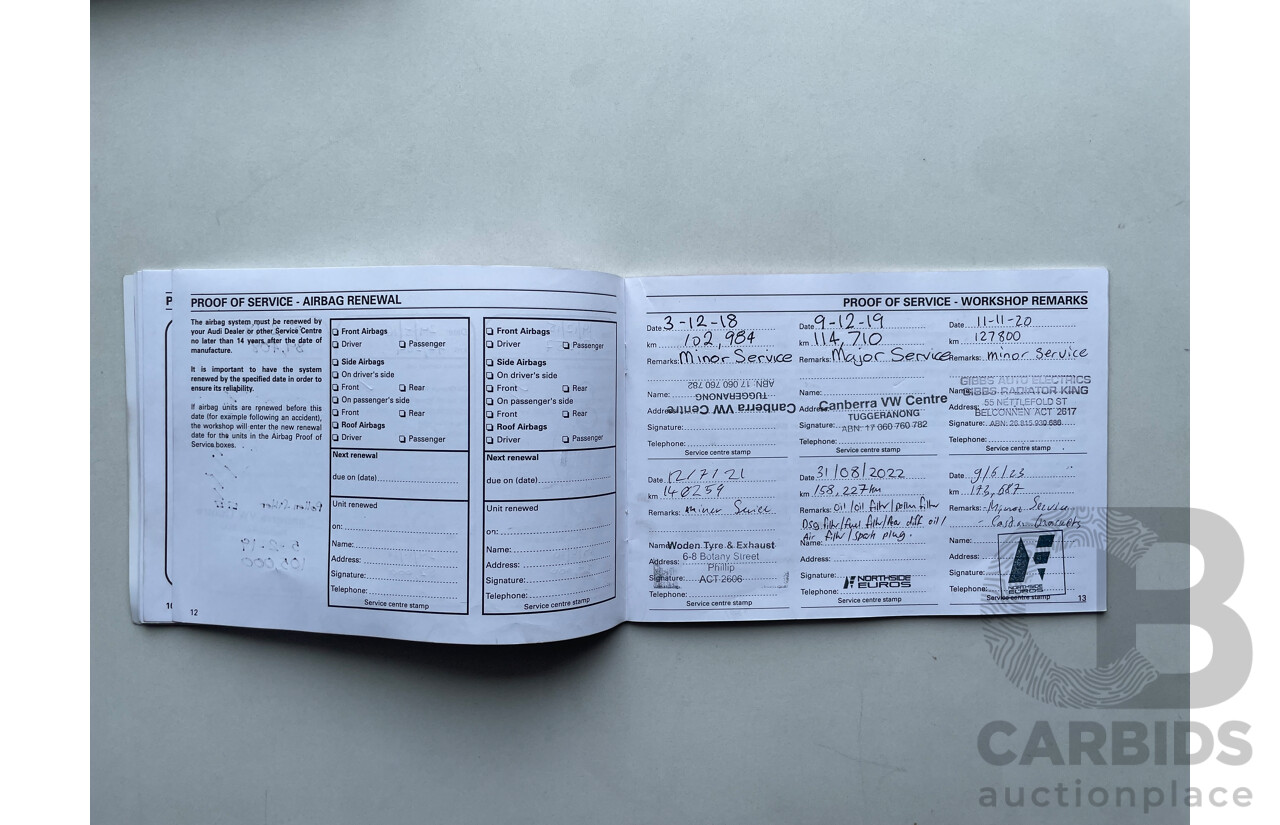 P
PROOF OF SERVICE - AIRBAG RENEWAL
The airbag system must be renewed by
your Audi Dealer or other Service Centre
no later than 14 years after the date of
manufacture.
It is important to have the system
renewed by the specified date in order to
ensure its reliability.
If airbag units are renewed before this
date (for example following an accident),
the workshop will enter the new renewal
date for the units in the Airbag Proof of
Service boxes.
Front Airbags
Driver Passenger
Side Airbags
On driver's side
Front Rear
On passenger's side
Front Rear
Roof Airbags
Driver Passenger
Next renewal
due on (date)
Unit renewed
on:
Name:
Address:
Signature:
Telephone:
Service centre stamp
Front Airbags
Driver Passenger
Side Airbags
On driver's side
Front Rear
On passenger's side
Front Rear
Roof Airbags
Driver Passenger
Next renewal
due on (date)
Unit renewed
on:
Name:
Address:
Signature:
Telephone:
Service centre stamp
12
PROOF OF SERVICE - WORKSHOP REMARKS
Date 3-12-18
km 102,984
Remarks: Minor Service
Name:
Address:
Signature:
Telephone:
Canberra VW Centre
TUGGERANONG
ABN 17 060 760 782
Service centre stamp
Date 9-12-19
km 114,710
Remarks: Major Service
Name:
Address:
Canberra VW Centre
TUGGERANONG
Signature:
ABN: 17 060 760 782
Telephone:
Service centre stamp
Date 11-11-20
km 127800
Remarks: minor Service
GIBBS AUTO ELECTRICS
Name:
GIBBS RADIATOR KING
55 NETTLEFOLD ST
Address:
BELCONNEN ACT 2617
Signature:
Telephone:
Service centre stamp
Date 12/7/21
km 140259
Remarks: minor Service
Name:
Woden Tyre & Exhaust
6-8 Botany Street
Address:
Phillip
Signature:
ACT 2606
Telephone:
Service centre stamp
Date 31/08/2022
km 158,227km
Remarks: Oil/oil filtr/pollen filtr
Dsg filtr/fuel filtr/ diff oil/
Air filtr/spark plug.
Name:
Address:
Signature:
NORTHSIDE
EUROS
Telephone:
Service centre stamp
Date 9/5/23
km 173,687
Remarks: - Minor Service
Name:
Address:
Signature:
Telephone:
NORTHSIDE
EUROS
Service centre stamp
13
CARBIDS
auctionplace